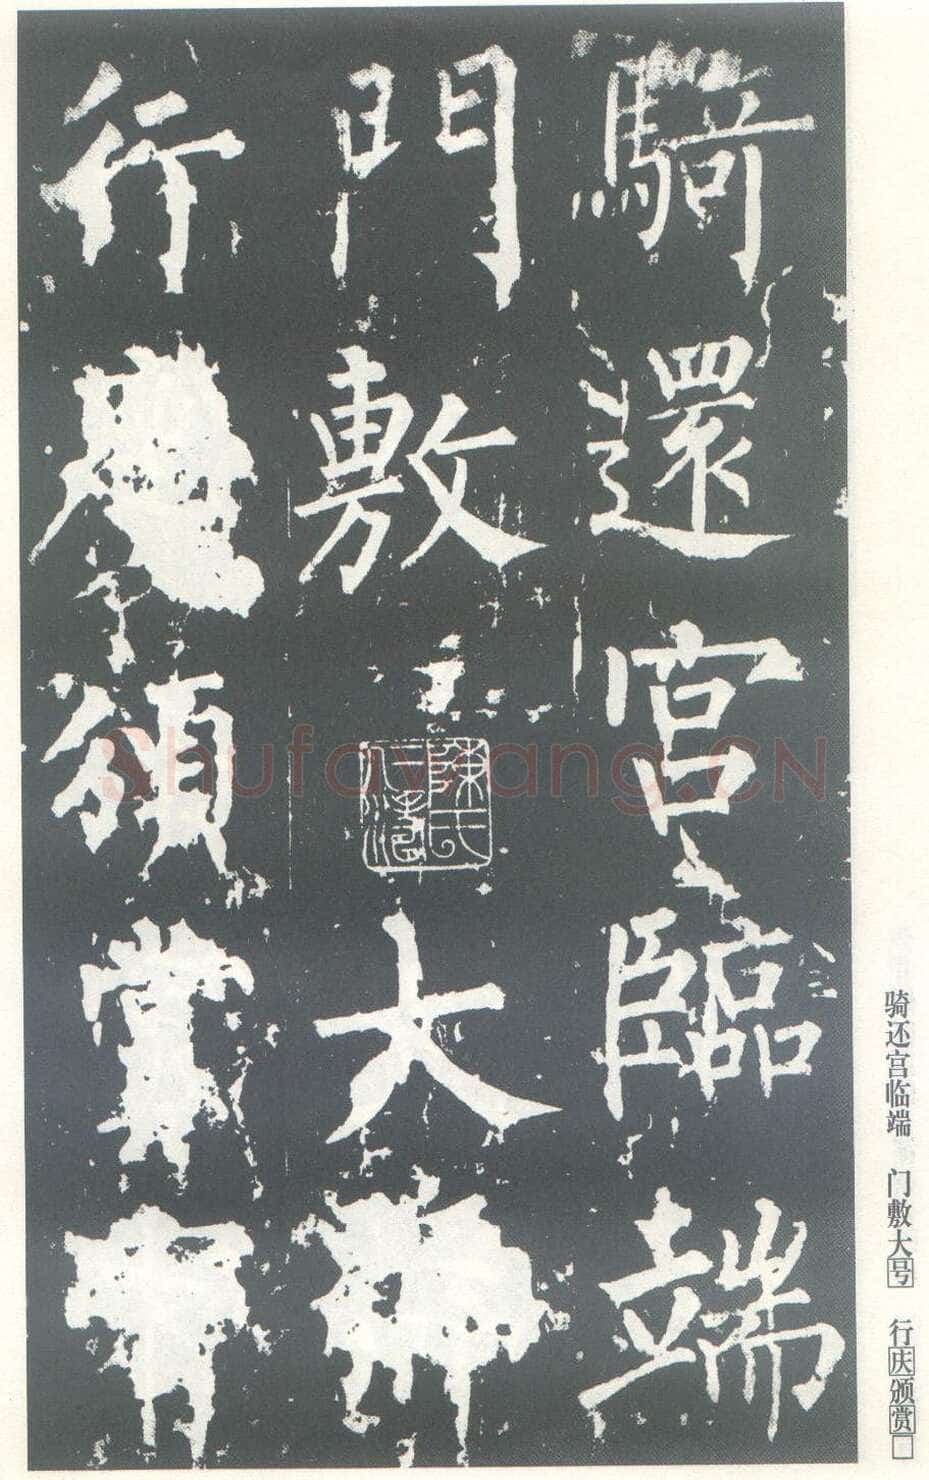 騎還宮臨端
門敷大
行慶頒賞
陳氏
骑还宫临端 门敷大号 行庆颁赏□
Shufawang.CN